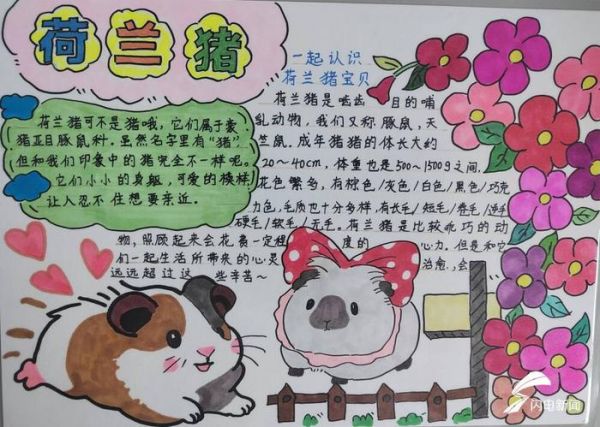 荷兰猪
一起认识
荷兰猪宝贝
荷兰猪可不是猪哦,它们属于豪
猪亚目豚鼠科。虽然名字里有“猪”,
但和我们印象中的猪完全不一样呢。
它们小小的身躯,可爱的模样,
让人忍不住想要亲近。
荷兰猪是啮齿目的哺
乳动物,我们又称豚鼠,天
竺鼠。成年猪猪的体长大约
20~40cm,体重也是500~1500g之间,
花色繁多,有棕色/灰色/白色/黑色/巧克
力色,毛质也十分多样,有长毛/短毛/卷毛/逆毛
硬毛/软毛/无毛。荷兰猪是比较乖巧的动
物,照顾起来会花费一定程度的心力。但是和它
们一起生活所带来的心灵治愈,会
远远超过这些辛苦~
闪电新闻